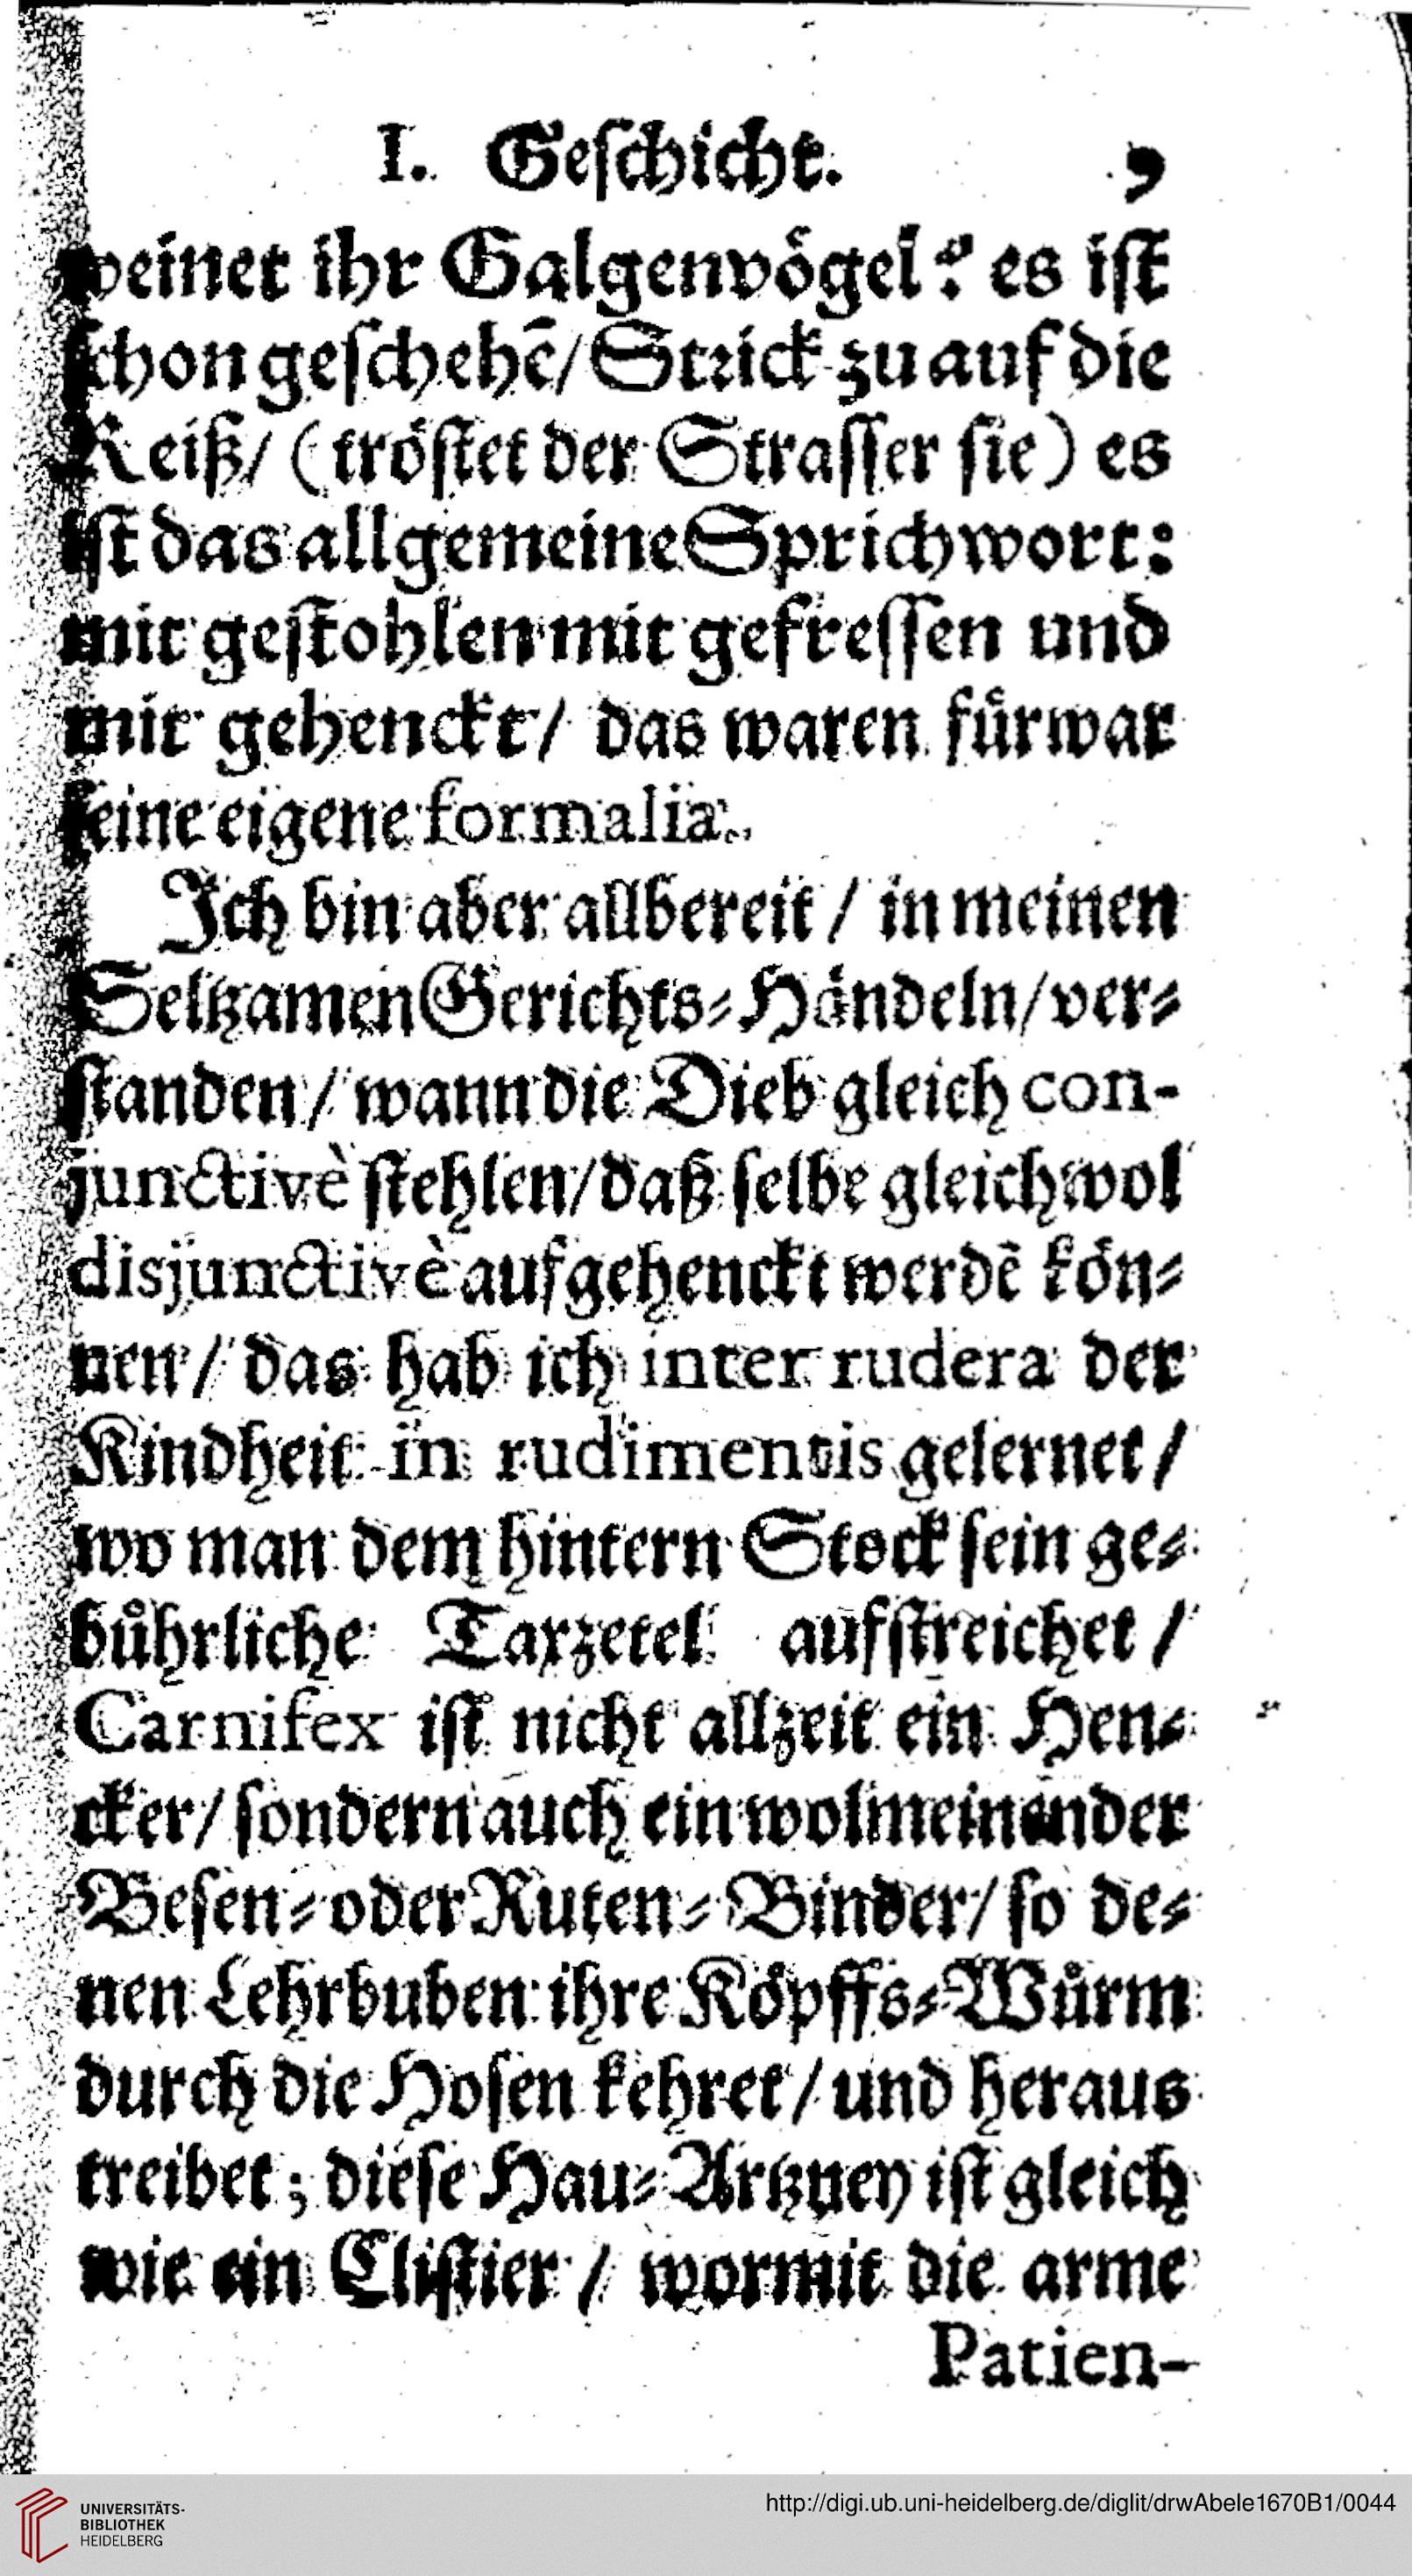 I. Geſchicht. 9
weinet ihr Galgenvoͤgel? es iſt
ſchon geſchehē/ Strick zu auf die
Reiß/ (troͤſtet der Straſſer ſie) es
iſt das allgemeine Sprichwort:
mit geſtohlen mit gefreſſen und
mit gehenckt/ das waren fuͤrwar
ſeine eigene formalia.
Ich bin aber allbereit / in meinen
Seltzamen Gerichts⸗Haͤndeln/ ver⸗
ſtanden / wann die Dieb gleich con-
junctivè ſtehlen/ daß ſelbe gleichwol
disjunctivè aufgehenckt werdē koͤn⸗
nen / das hab ich inter rudera der
Kindheit in rudimentis gelernet /
wo man dem hintern Stock ſein ge⸗
buͤhrliche Taxzetel aufſtreichet /
Carnifex iſt nicht allzeit ein Hen⸗
cker/ ſondern auch ein wolmeinender
Beſen⸗ oder Ruten⸗Binder/ ſo de⸗
nen Lehrbuben ihre Koͤpffs⸗Wuͤrm
durch die Hoſen kehret / und heraus
treibet; dieſe Hau⸗Artzney iſt gleich
wie ein Cliſtier / wormit die arme
Patien-
UNIVERSITÄTS-
BIBLIOTHEK
HEIDELBERG
http://digi.ub.uni-heidelberg.de/diglit/drwAbele1670B1/0044